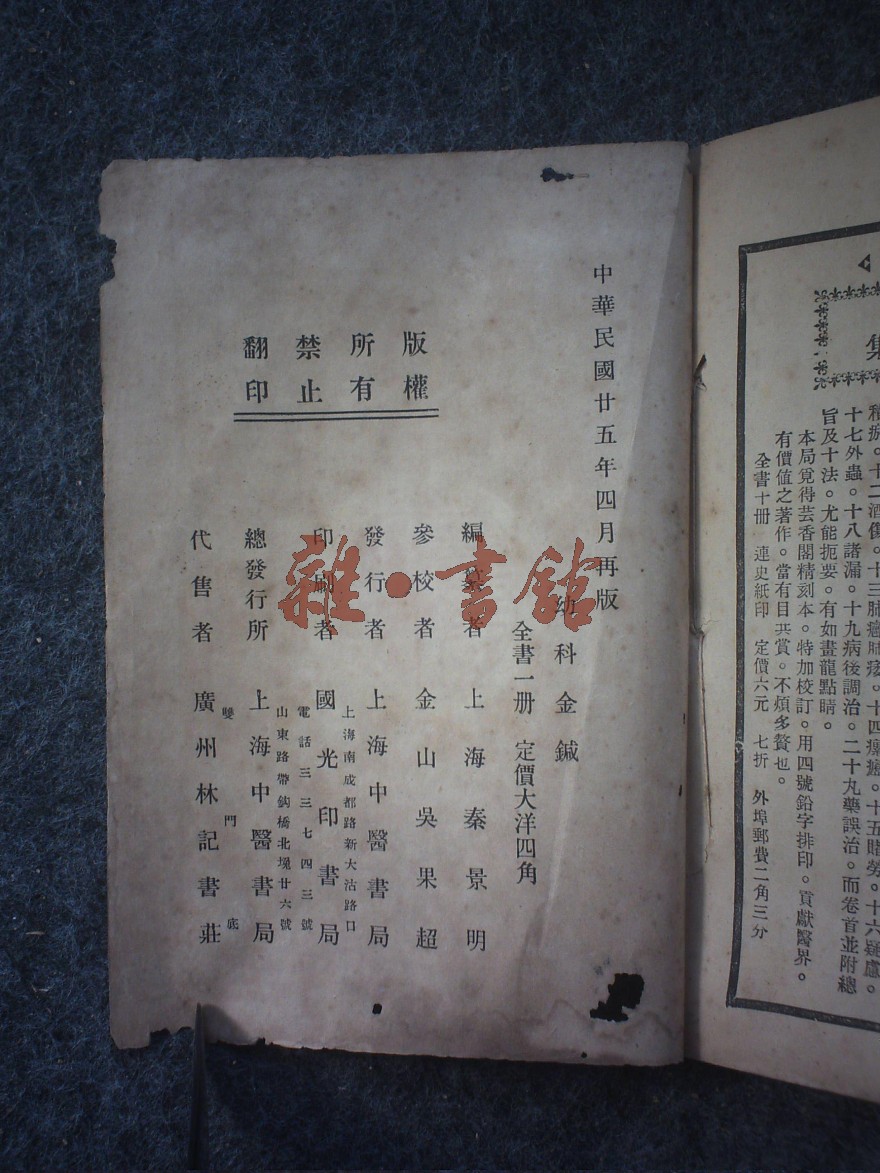 集
積痨。十二酒傷。十三肺癰肺痿。十四瘰癧。十五時勞。十六疑慮。
十七外蟲。十八諸漏。十九病後調治。二十九藥誤治。而卷首並附總
旨及十法。尤能扼要。有如畫龍點睛。
本局覓得芸香閣精刻本。特加校訂。用四號鉛字排印。貢獻醫界。
有價值之著作。當有目共賞。不煩多贅也。
全書十冊 連史紙印 定價六元 七折 外埠郵費二角三分
中華民國廿五年四月再版
幼科金鍼
全書一册 定價大洋四角
編纂者 上海秦景明
參校者 金山吳果超
發行者 上海中醫書局
上海南成都路新大沽路口
印刷者 國光印書局
電話三三七四三號
山東路帶鈎橋北堍廿六號
總發行所 上海中醫書局
雙門底
代售者 廣州林記書莊
版權所有禁止翻印
雜·書館